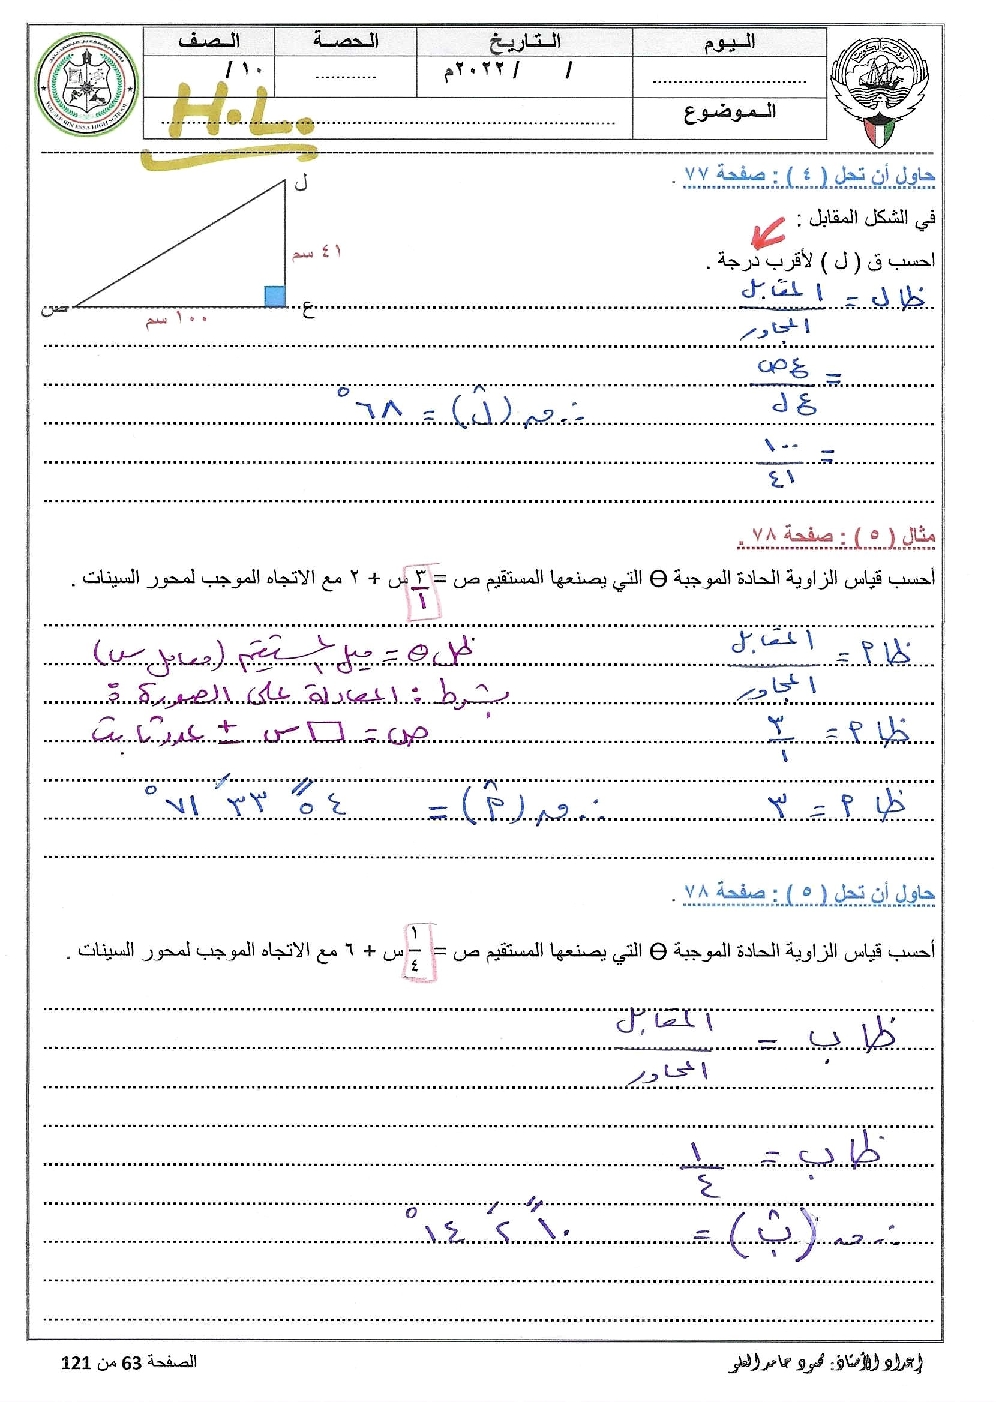 اليوم
التاريخ
الحصة
الصف
..................
/ / ٢٠٢٢م
............
١٠ /
الموضوع
H.L.
حاول أن تحل ( ٤ ) : صفحة ٧٧ .
في الشكل المقابل :
احسب ق ( ل ) لأقرب درجة .
ل
٤١ سم
ع
ص
١٠٠ سم
ظا ل = المقابل / المجاور
= ع ص / ع ل
∴ ق (ل̂) = ٦٨°
= ١٠٠ / ٤١
مثال ( ٥ ) : صفحة ٧٨ .
أحسب قياس الزاوية الحادة الموجبة θ التي يصنعها المستقيم ص = ٣/١ س + ٢ مع الاتجاه الموجب لمحور السينات .
ظا م = المقابل / المجاور
ظل θ = ميل المستقيم (معامل س)
بشرط : المعادلة على الصورة :
ظا م = ٣/١
ص = □ س ± عدد ثابت
ظا م = ٣
∴ ق (م̂) = ٥٤ً ٣٣َ ٧١°
حاول أن تحل ( ٥ ) : صفحة ٧٨ .
أحسب قياس الزاوية الحادة الموجبة θ التي يصنعها المستقيم ص = ١/٤ س + ٦ مع الاتجاه الموجب لمحور السينات .
ظا ب = المقابل / المجاور
ظا ب = ١/٤
∴ ق (ب̂) = ١٠ً ٢َ ١٤°
إعداد الأستاذ: محمود حامد العلو
الصفحة 63 من 121